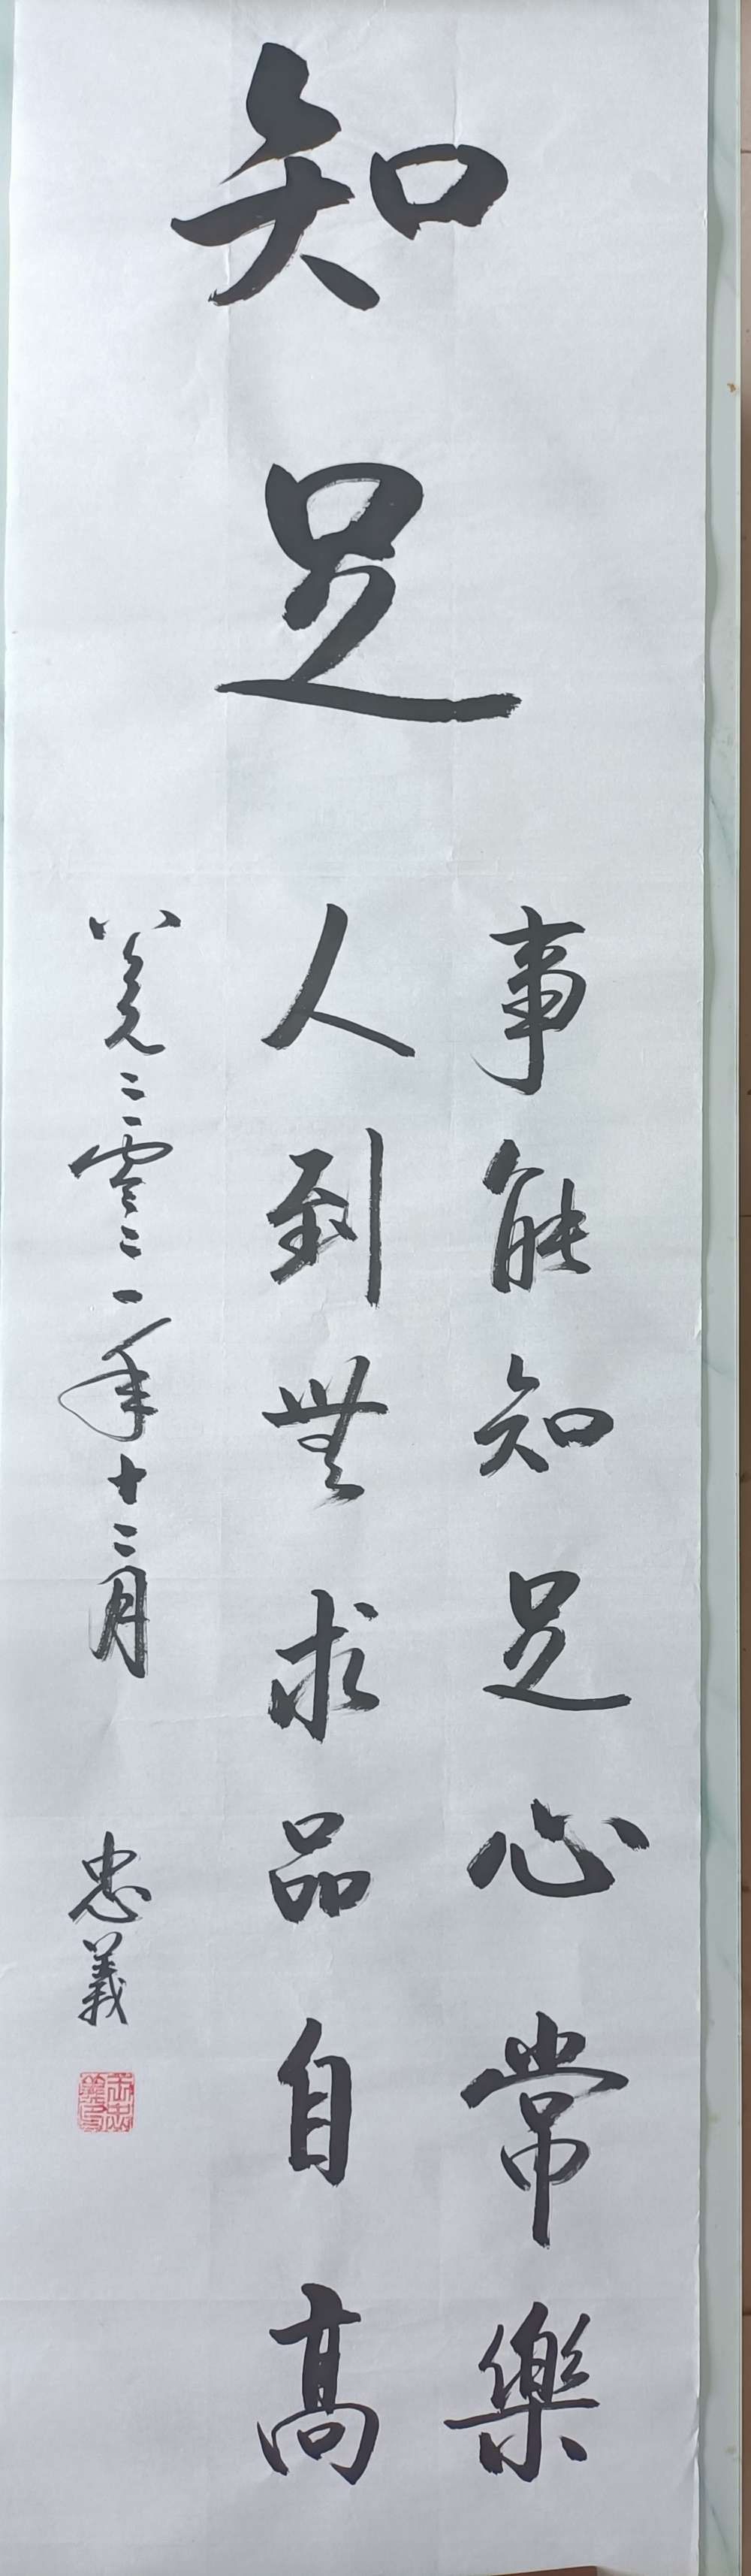 知足
事能知足心常樂
人到無求品自高
公元二零二一年十二月 忠義